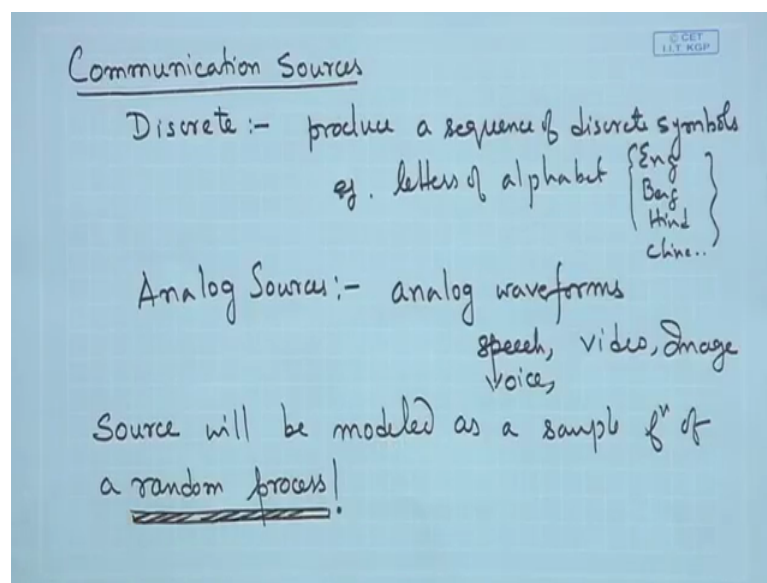 © CET
I.I.T. KGP
Communication Sources
Discrete :- produce a sequence of discrete symbols
eg. letters of alphabet { Eng
Beng
Hind
Chine.. }
Analog Sources :- analog waveforms
speech, video, Image
voice,
Source will be modeled as a sample fⁿ of
a random process!